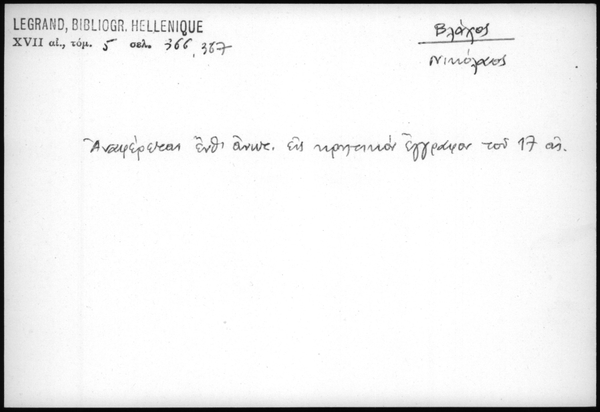 LEGRAND, BIBLIOGR. HELLENIQUE
XVII αἰ., τόμ. 5 σελ. 366, 367
Βλάχος
Νικόλαος
Ἀναφέρεται ἔνθ' ἄνωτ. εἰς κρητικόν ἔγγραφον τοῦ 17 αἰ.